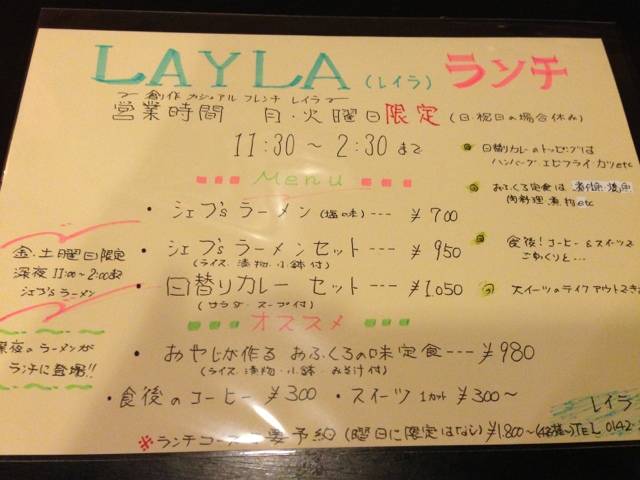 LAYLA (レイラ) ランチ
創作 カジュアル フレンチ レイラ
営業時間 月・火曜日限定 (日・祝日の場合休み)
11:30～2:30まで
Menu
・シェフ'sラーメン(塩の味)---¥700
・シェフ'sラーメンセット---¥950
(ライス・漬物・小鉢付)
・日替りカレーセット---¥1.050
(サラダ・スープ付)
オススメ
・おやじが作る おふくろの味定食---¥980
(ライス・漬物・小鉢・みそ汁付)
・食後のコーヒー ¥300 ・スイーツ 1カット ¥300～
※ランチコース 要予約(曜日に限定はなし)¥1.800～
TEL 0142
レイラ
日替りカレーのトッピングは
ハンバーグ エビフライ カツetc
おふくろ定食は 煮魚・焼魚
肉料理・煮物etc
食後!コーヒー&スイーツで
ごゆっくりと…
スイーツのテイクアウトでき
金・土曜日限定
深夜11:00～2:00まで
シェフ'sラーメン
深夜のラーメンが
ランチに登場!!